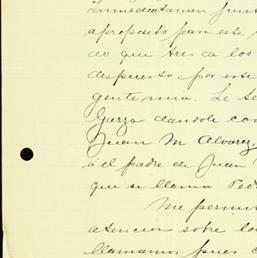 Inmediatamen junt
aproposito para este
do que tres de los
despuesto por este
gente mia. Le se
Garza dandole con
Juan M Alvarez.
a el padre de Juan
que se llama Ped
Me permi
atencion sobre lo
llamamos pues c